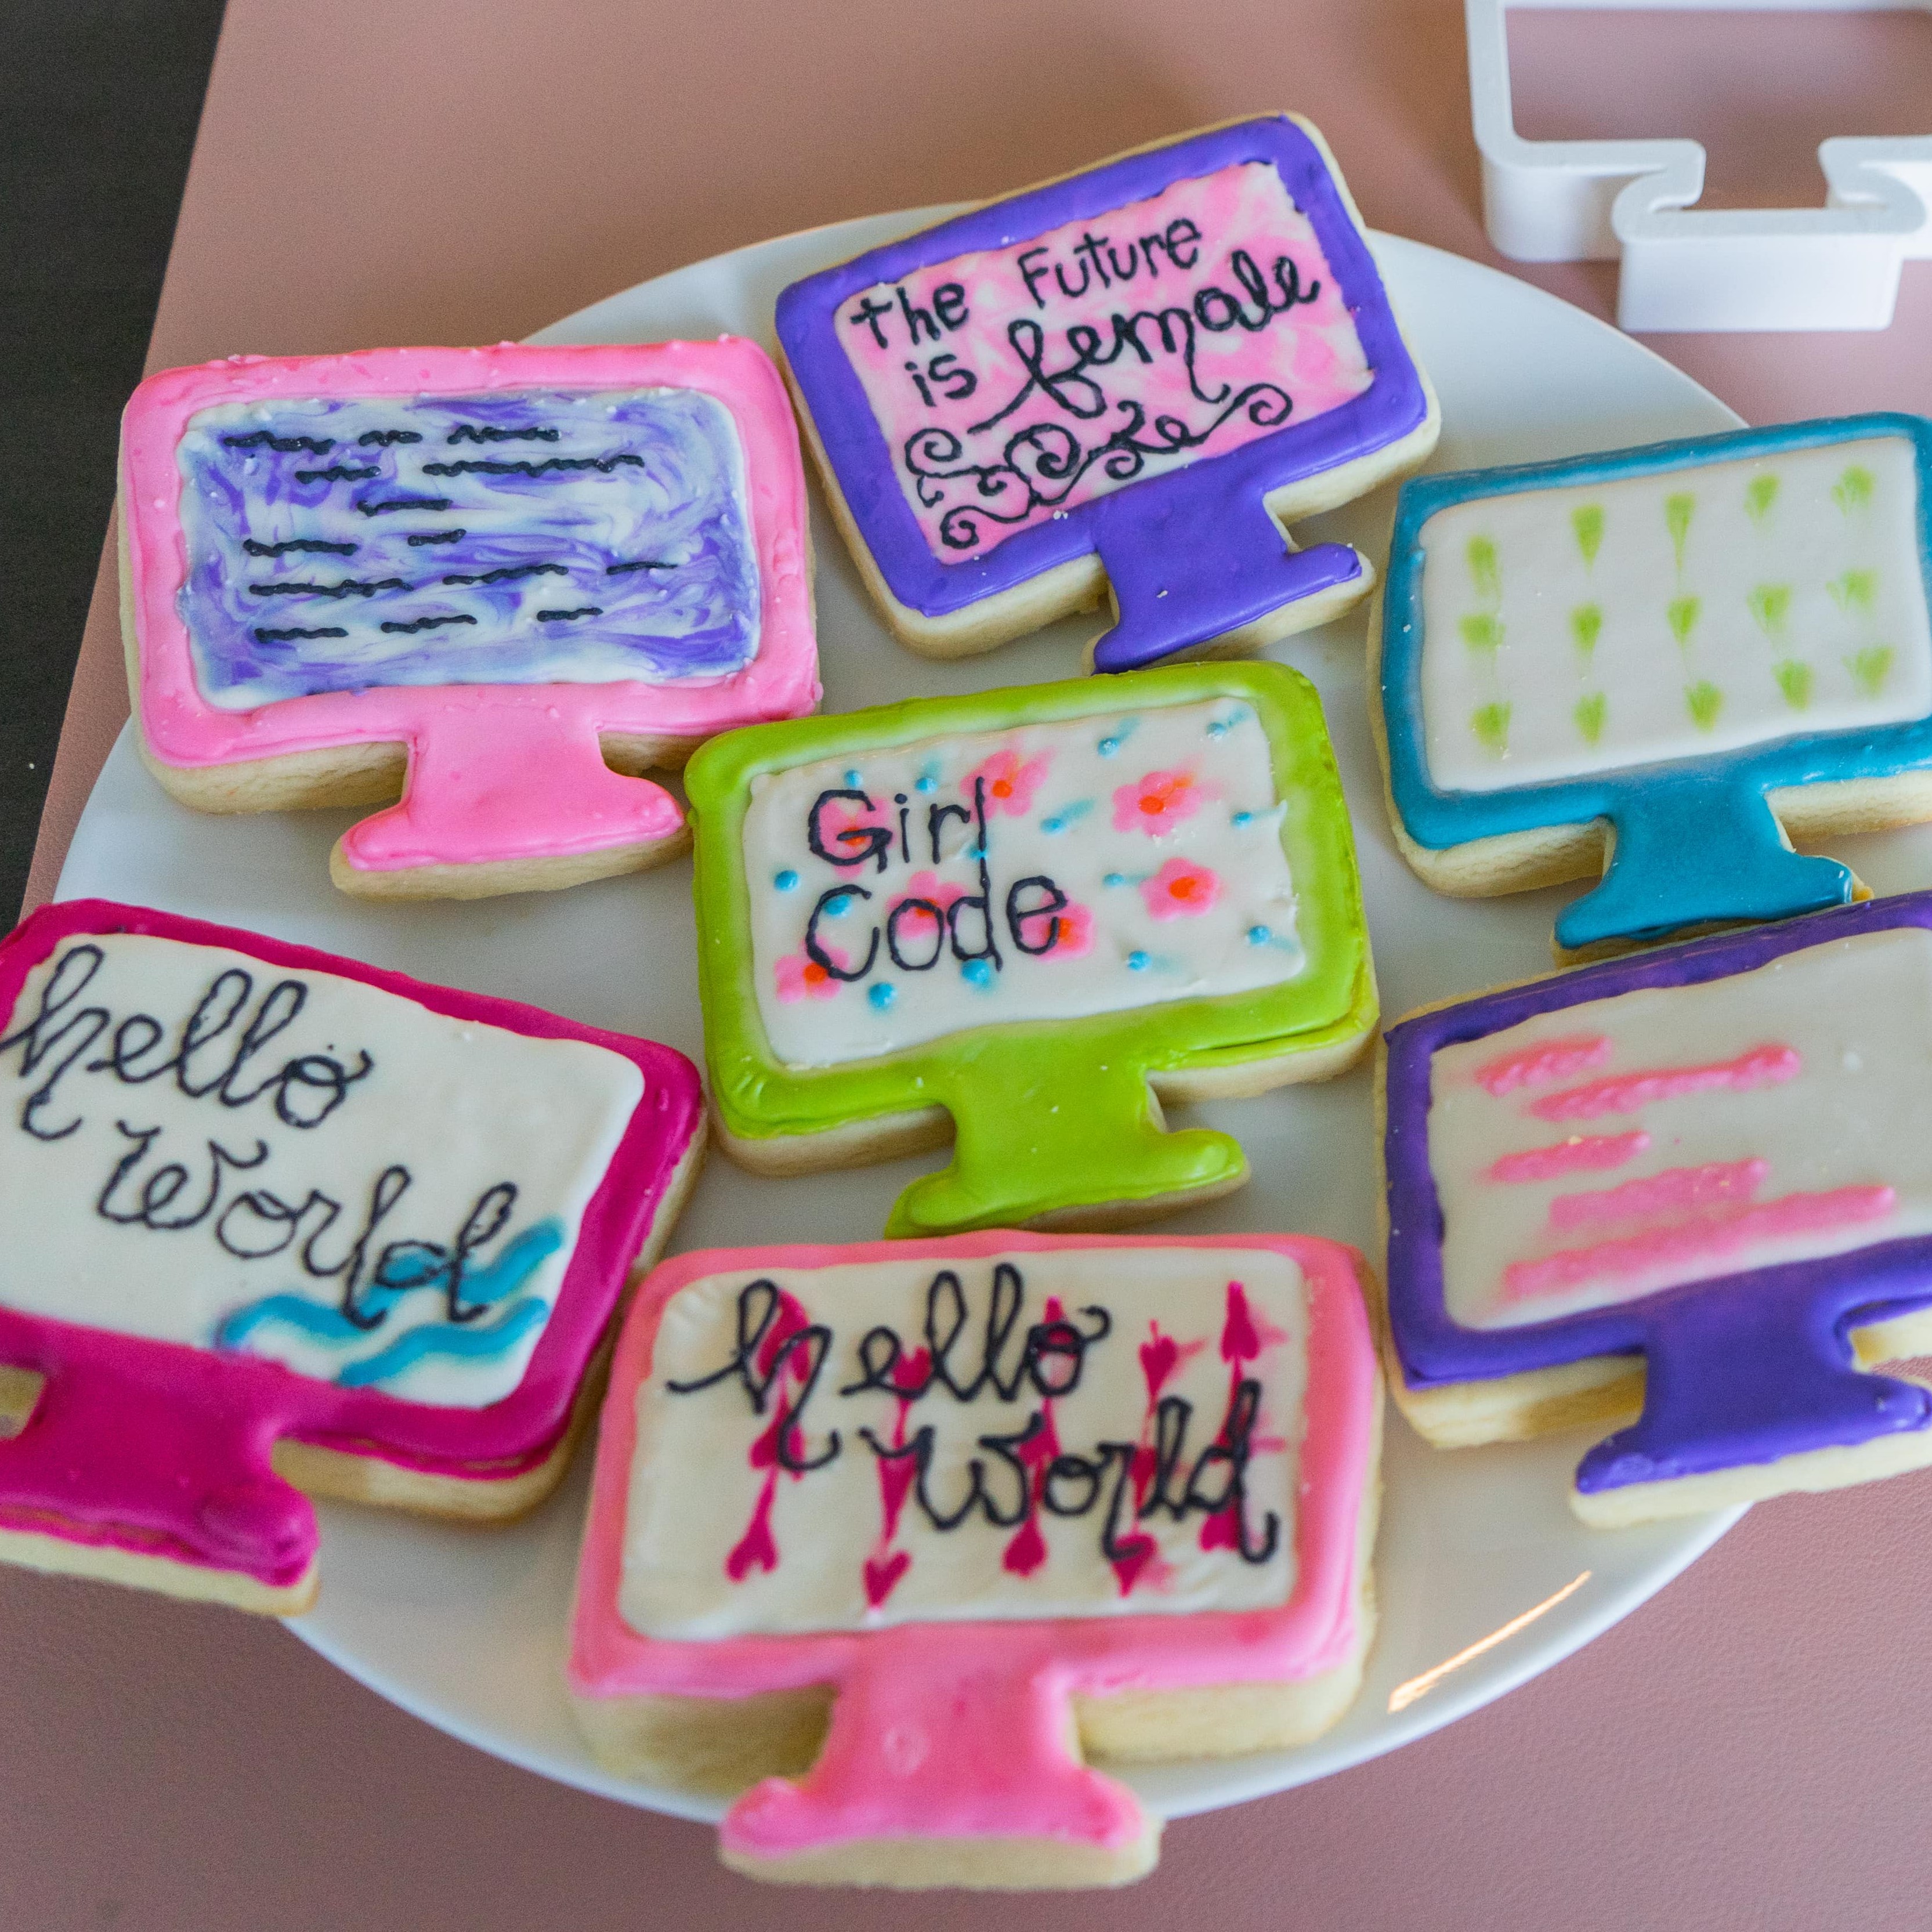 the Future
is female
Girl
Code
hello
world
hello
world